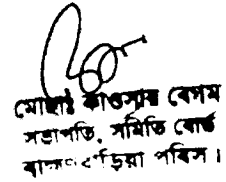 মোছাঃ কাওসার বেগম
সভাপতি, সমিতি বোর্ড
ব্রাহ্মণবাড়িয়া পবিস।